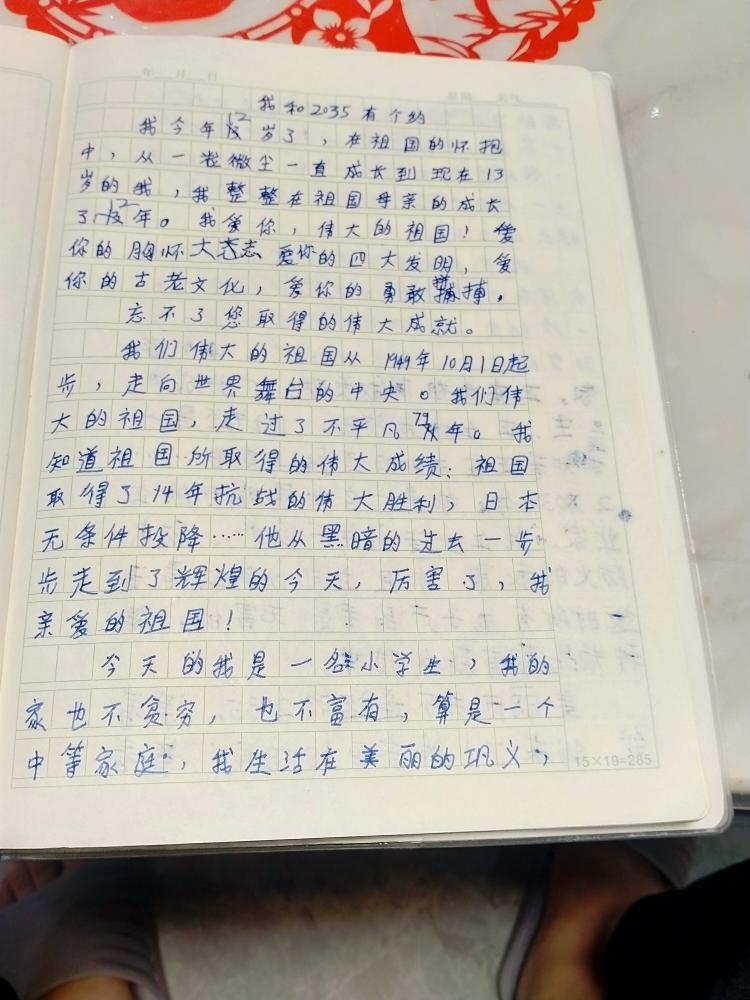 年 月 日
我和2035有个约
我今年12岁了,在祖国的怀抱
中,从一粒微尘一直成长到现在13
岁的我,我整整在祖国母亲的成长
了12年。我爱你,伟大的祖国!爱
你的胸怀大志 爱你的四大发明,爱
你的古老文化,爱你的勇敢拼搏,
忘不了您取得的伟大成就。
我们伟大的祖国从1949年10月1日起
步,走向世界舞台的中央。我们伟
大的祖国,走过了不平凡73年。我
知道祖国所取得的伟大成绩:祖国
取得了14年抗战的伟大胜利,日本
无条件投降……他从黑暗的过去一步
步走到了辉煌的今天,厉害了,我
亲爱的祖国!
今天的我是一名小学生,我的
家也不贫穷,也不富有,算是一个
中等家庭,我生活在美丽的巩义,
15×19=285